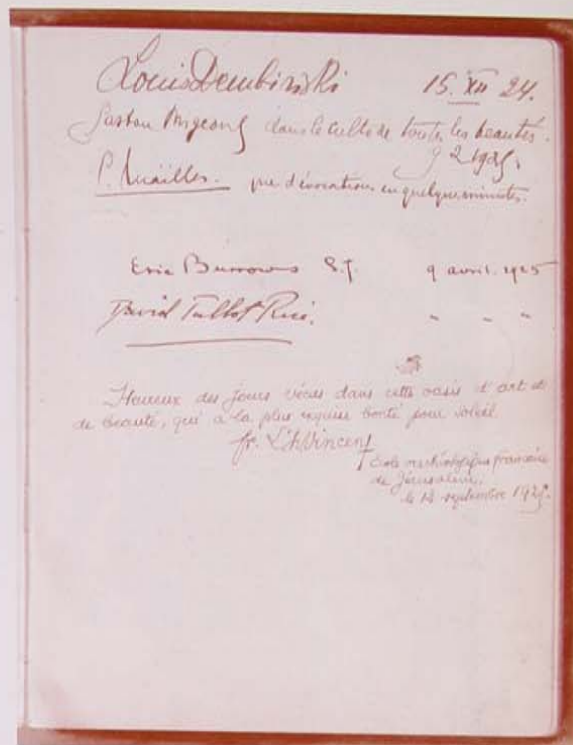 Louis Dembinski 15. XII 24.
Gaston Migeon dans le culte de toutes les beautés.
9 2 1925.
que d'évocations en quelques minutes.
Eric Burrows S.J. 9 avril. 1925
David Talbot Rice. " " "
Heureux des jours vécus dans cette oasis d'art et
de beauté, qui a la plus exquise bonté pour soleil.
fr. L. h Vincent
École archéologique française
de Jérusalem,
le 14 septembre 1925.